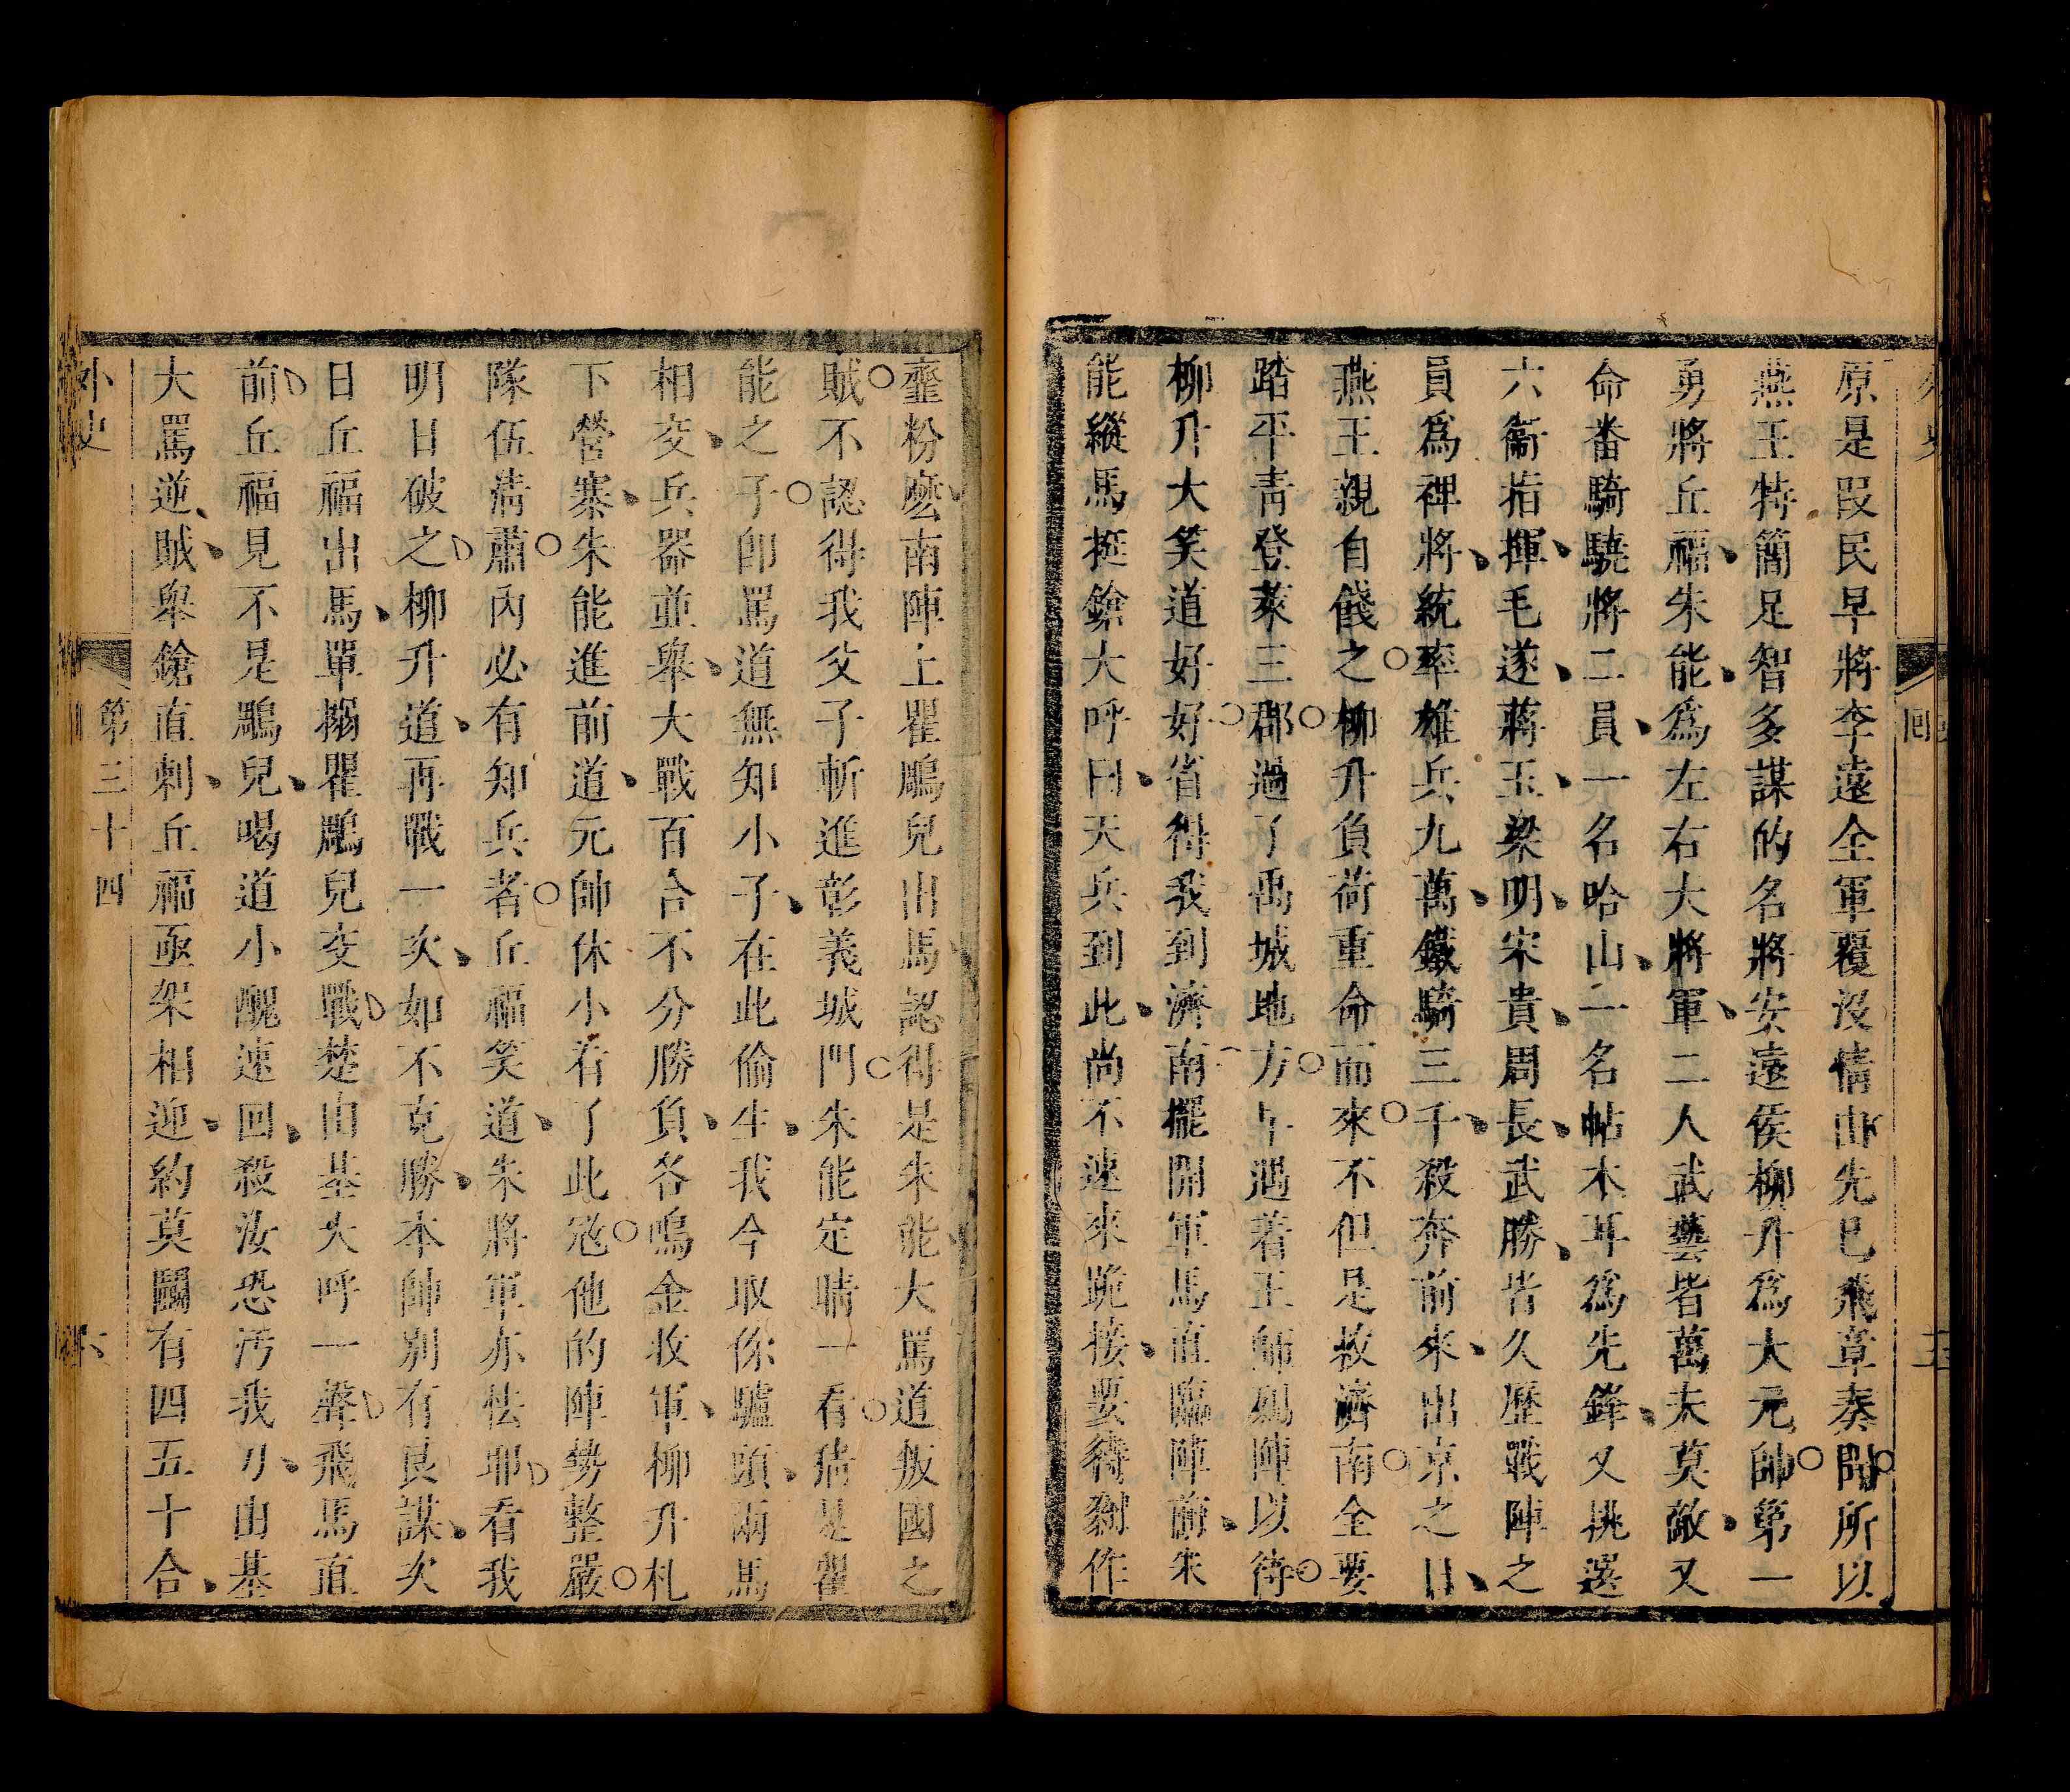 原是叚民早將李遠全軍覆沒情由先已飛章奏聞所以
燕王特簡足智多謀的名將安遠侯柳升爲大元帥第一
勇將丘福朱能爲左右大將軍二人武藝皆萬夫莫敵又
命番騎驍將二員一名哈山一名帖木耳爲先鋒又挑選
六衞指揮毛遂蔣玉梁明宋貴周長武勝皆久歷戰陣之
員爲裨將統率雄兵九萬鐵騎三千殺奔前來出京之日
燕王親自餞之柳升負荷重命而來不但是救濟南全要
踏平靑登萊三郡過了禹城地方早遇着王師列陣以待
柳升大笑道好好省得我到濟南擺開軍馬直臨陣前朱
能縱馬挺鎗大呼曰天兵到此尚不速來跪接要待剿作
虀粉麽南陣上瞿鵰兒出馬認得是朱能大罵道叛國之
賊不認得我父子斬進彰義城門朱能定睛一看猜是瞿
能之子卽罵道無知小子在此偷生我今取你驢頭兩馬
相交兵器並舉大戰百合不分勝負各鳴金收軍柳升札
下營寨朱能進前道元帥休小看了此寇他的陣勢整嚴
隊伍淸肅內必有知兵者丘福笑道朱將軍亦怯耶看我
明日破之柳升道再戰一次如不克勝本帥別有良謀次
日丘福出馬單搦瞿鵰兒交戰楚由基大呼一聲飛馬直
前丘福見不是鵰兒喝道小醜速回殺汝恐汚我刀由基
大罵逆賊舉鎗直刺丘福亟架相迎約莫鬭有四五十合
外史
第三十四
六